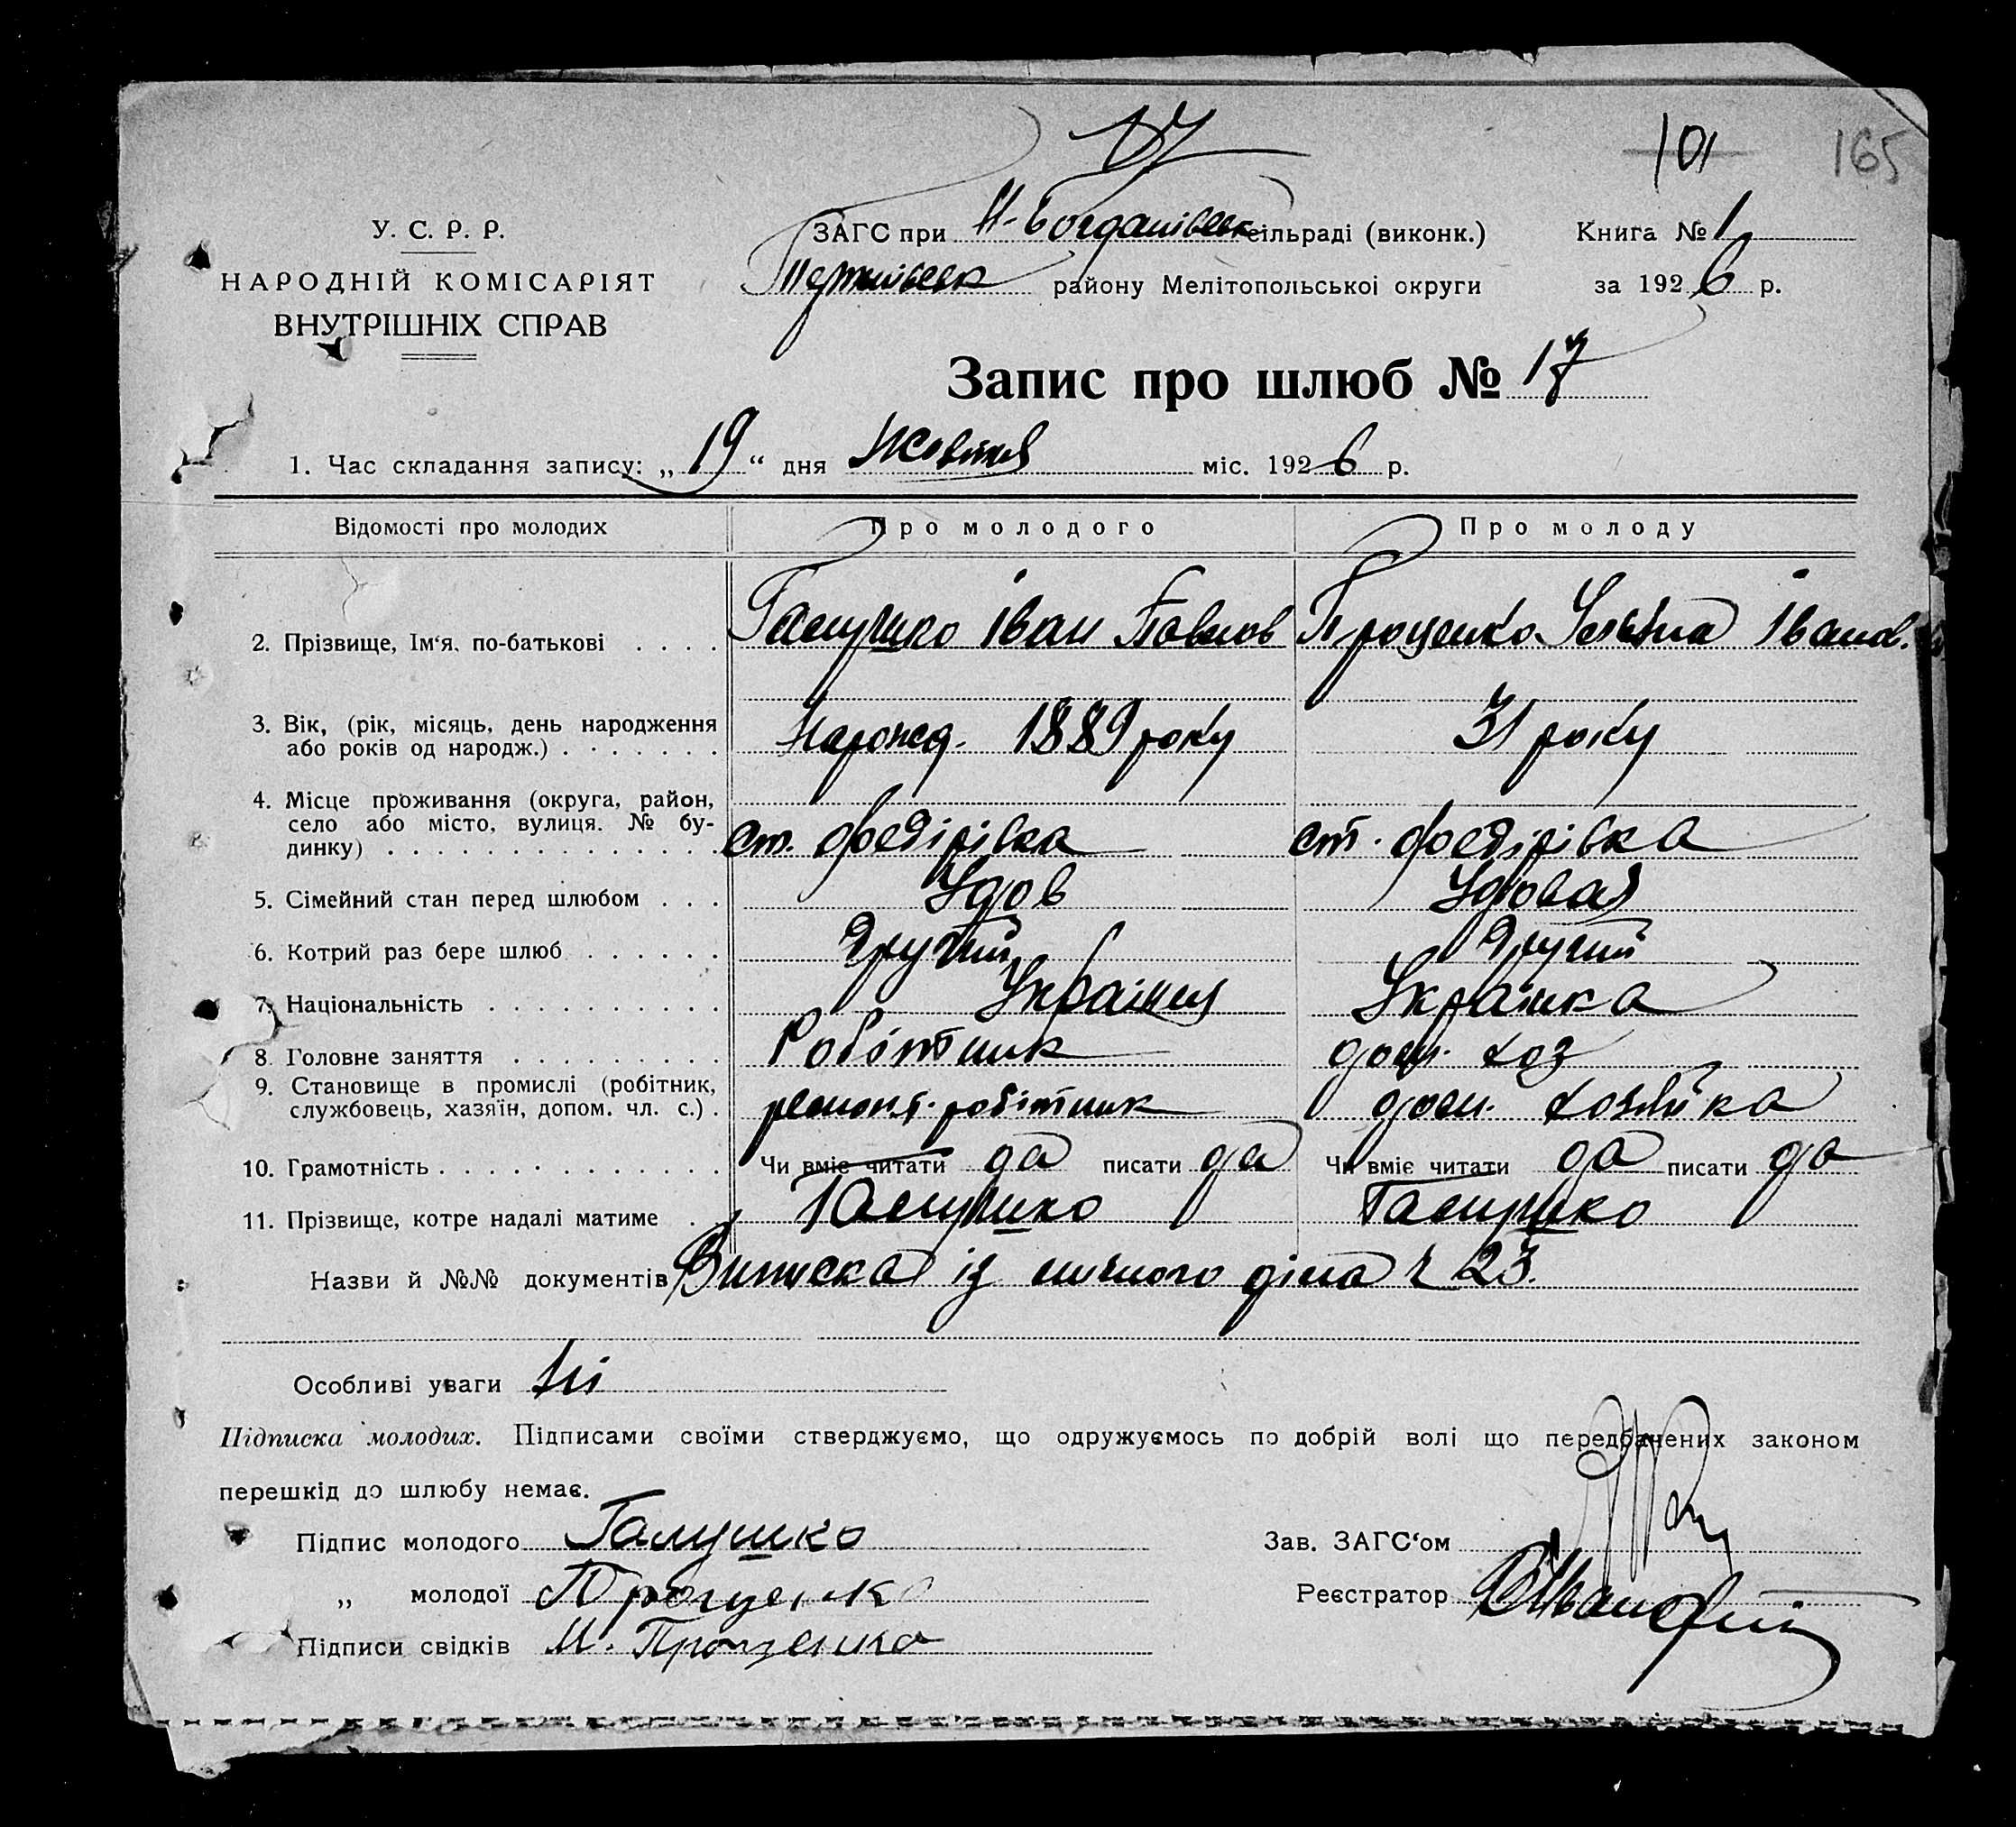 17
101 165
У. С. Р. Р.
НАРОДНІЙ КОМІСАРІЯТ
ВНУТРІШНІХ СПРАВ
ЗАГС при Н-Богданівськ сільраді (виконк.)
району Мелітопольської округи
Книга № 1
за 1926 р.
Запис про шлюб № 17
1. Час складання запису: „19“ дня Жовтня міс. 1926 р.
Відомості про молодих Про молодого Про молоду
2. Прізвище, Ім‘я, по-батькові . . . . Галушко Іван Павлов Проценко Іванов.
3. Вік, (рік, місяць, день народження
або років од народж.) . . . . . . . Нарожд. 1889 року 31 року
4. Місце проживання (округа, район,
село або місто, вулиця. № бу-
динку) . . . . . . . . . . . . . ст. Федірівка ст. Федірівка
5. Сімейний стан перед шлюбом . . . Удов Удовая
6. Котрий раз бере шлюб . . . . . . Другий Другий
7. Національність . . . . . . . . . . Українец Українка
8. Головне заняття . . . . . . . . . Робітник дом. хоз
9. Становище в промислі (робітник,
службовець, хазяїн, допом. чл. с.) . ремонт. робітник дом. хозяйка
10. Грамотність . . . . . . . . . . . . Чи вміє читати да писати да Чи вміє читати да писати да
11. Прізвище, котре надалі матиме . . Галушко Галушко
Назви й №№ документів Виписка із личного діла № 23.
Особливі уваги Ні
Підписка молодих. Підписами своїми стверджуємо, що одружуємось по добрій волі що передбачених законом
перешкід до шлюбу немає.
Підпис молодого Галушко
Зав. ЗАГС‘ом
„ молодої Проценко
Реєстратор
Підписи свідків М. Проценко